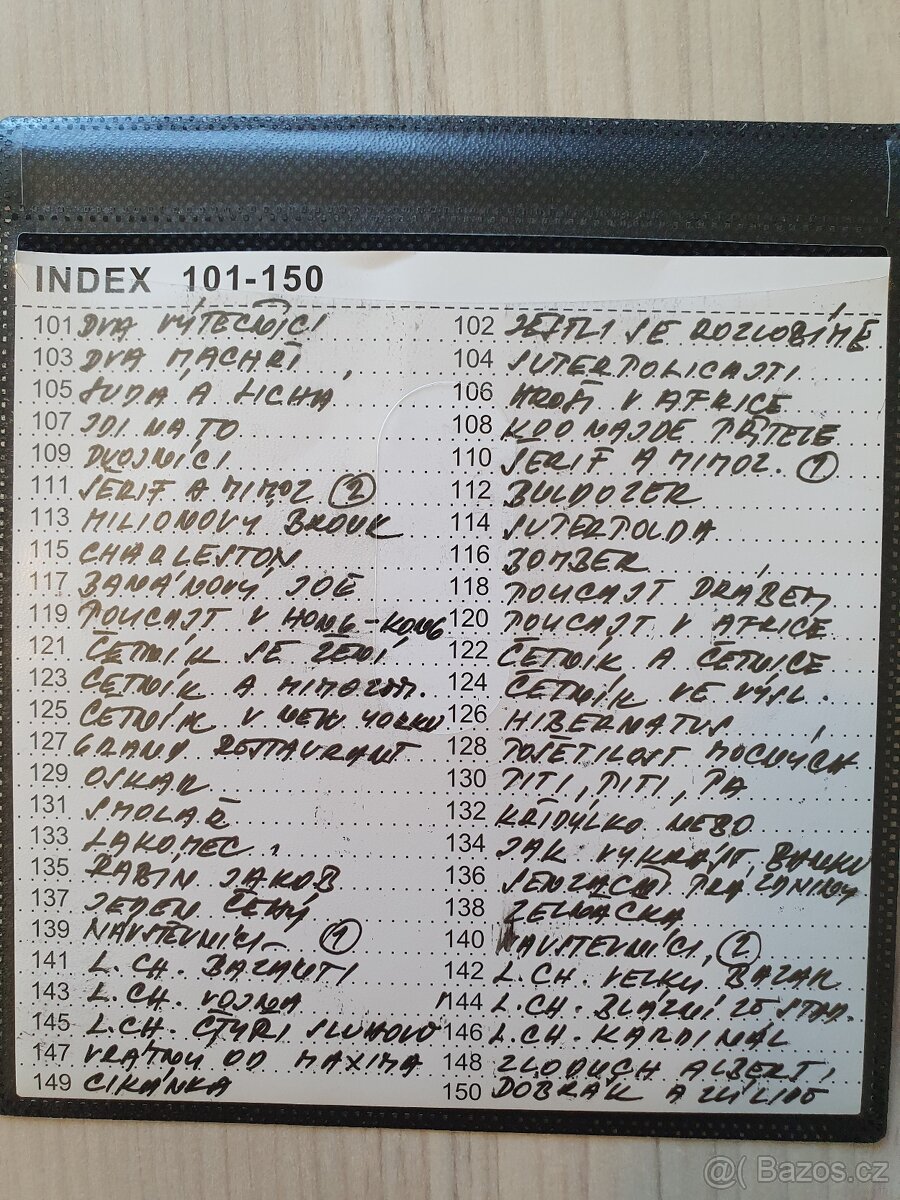 INDEX 101-150
101 DVA VÝTEČNÍCI 102 JEŠTLI SE ROZLOBÍME
103 DVA MACHŘI 104 SUPERPOLICAJTI
105 HUDÁ A LICHÁ 106 HROŠI V AFRICE
107 JDI NA TO 108 KDO NAJDE PŘÍTELE
109 DVOJNÍCI 110 ŠERIF A MIMOZ. 1
111 ŠERIF A MIMOZ 2 112 BULDOZER
113 MILIONOVÝ BROUK 114 SUPERPOLDA
115 CHARLESTON 116 BOMBER
117 BANÁNOVÝ JOE 118 POLICAJT DRÁBEM
119 POLICAJT V HONG-KONG 120 POLICAJT V AFRICE
121 ČETNÍK SE ŽENÍ 122 ČETNÍK A ČETNICE
123 ČETNÍK A MIMOZEM. 124 ČETNÍK VE VÝSL.
125 ČETNÍK V NEW YORKU 126 HIBERNATUS
127 GRAND RESTAURANT 128 POŠETILOST MOCNÝCH
129 OSKAR 130 PITI, PITI, PA
131 SMOLAŘ 132 KŘIDÝLKO NEBO
133 LAKOMEC 134 JAK VYKRÁST BANKU
135 RABÍN JAKOB 136 SENZAČNÍ PRÁZDNINY
137 JEDEN ČEHÝ 138 ZELŇAČKA
139 NÁVŠTĚVNÍCI 1 140 NÁVŠTĚVNÍCI, 2
141 L. CH. BAŽANTI 142 L. CH. VELKÝ BAZAR
143 L. CH. VOJNA 144 L. CH. BLÁZNI ZE STAD.
145 L. CH. ČTYŘI SLUHOVÉ 146 L. CH. KARDINÁL
147 VRÁTNÝ OD MAXIMA 148 ZLODUCH ALBERT
149 CIKÁNKA 150 DOBRÁK A ZLÍ LIDÉ
@( Bazos.cz